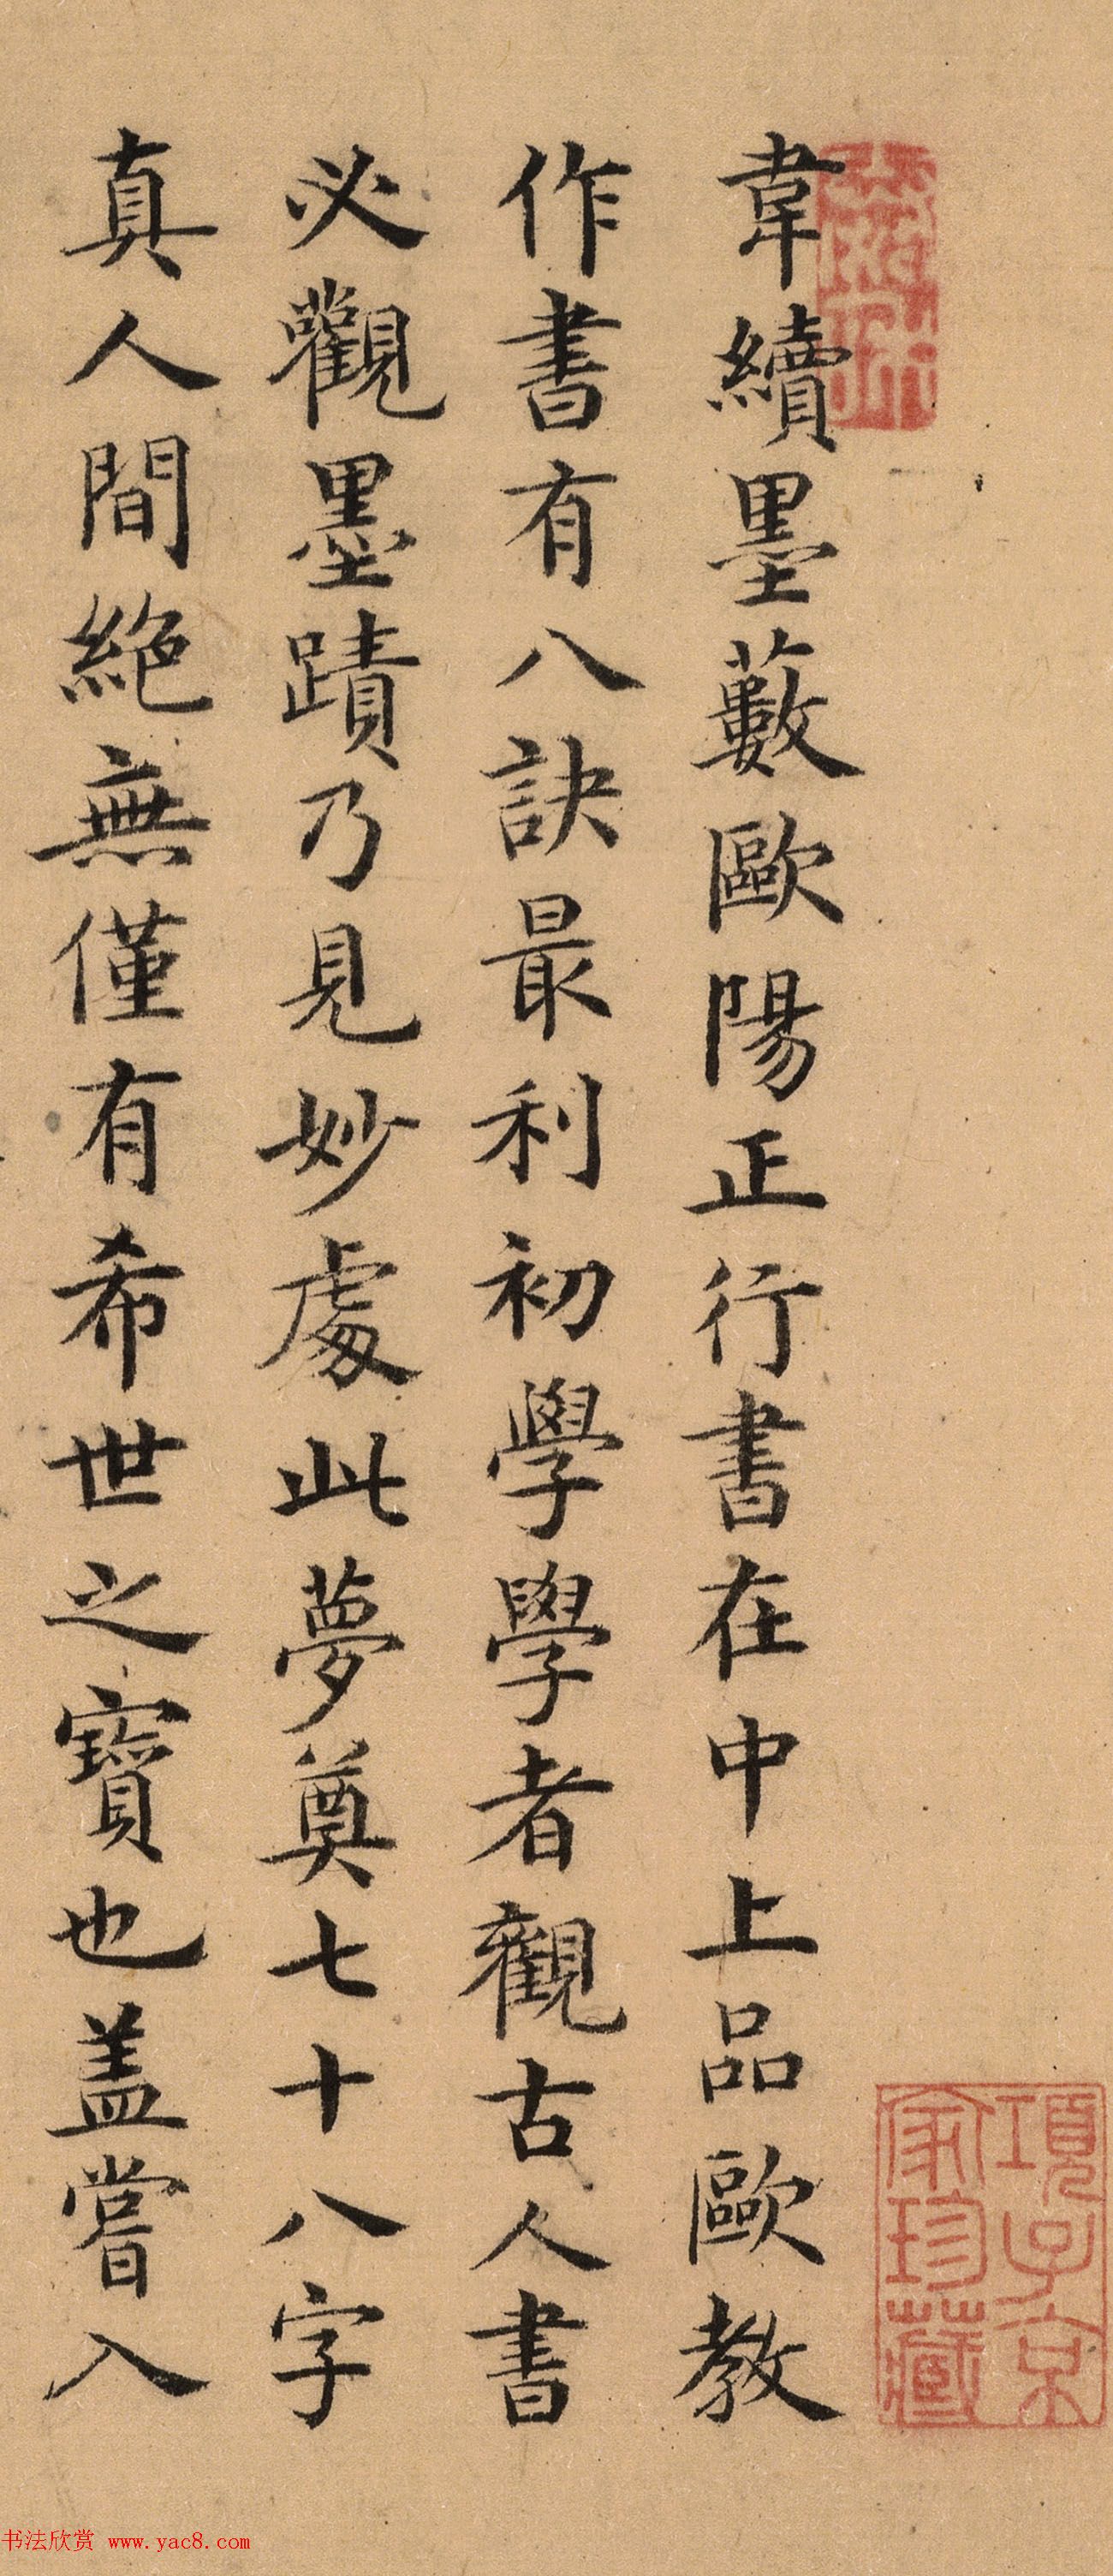 韋續墨藪歐陽正行書在中上品歐教
作書有八訣最利初學學者觀古人書
必觀墨蹟乃見妙處此夢奠七十八字
真人間絕無僅有希世之寶也盖嘗入
項子京
家珍藏
书法欣赏 www.yac8.com